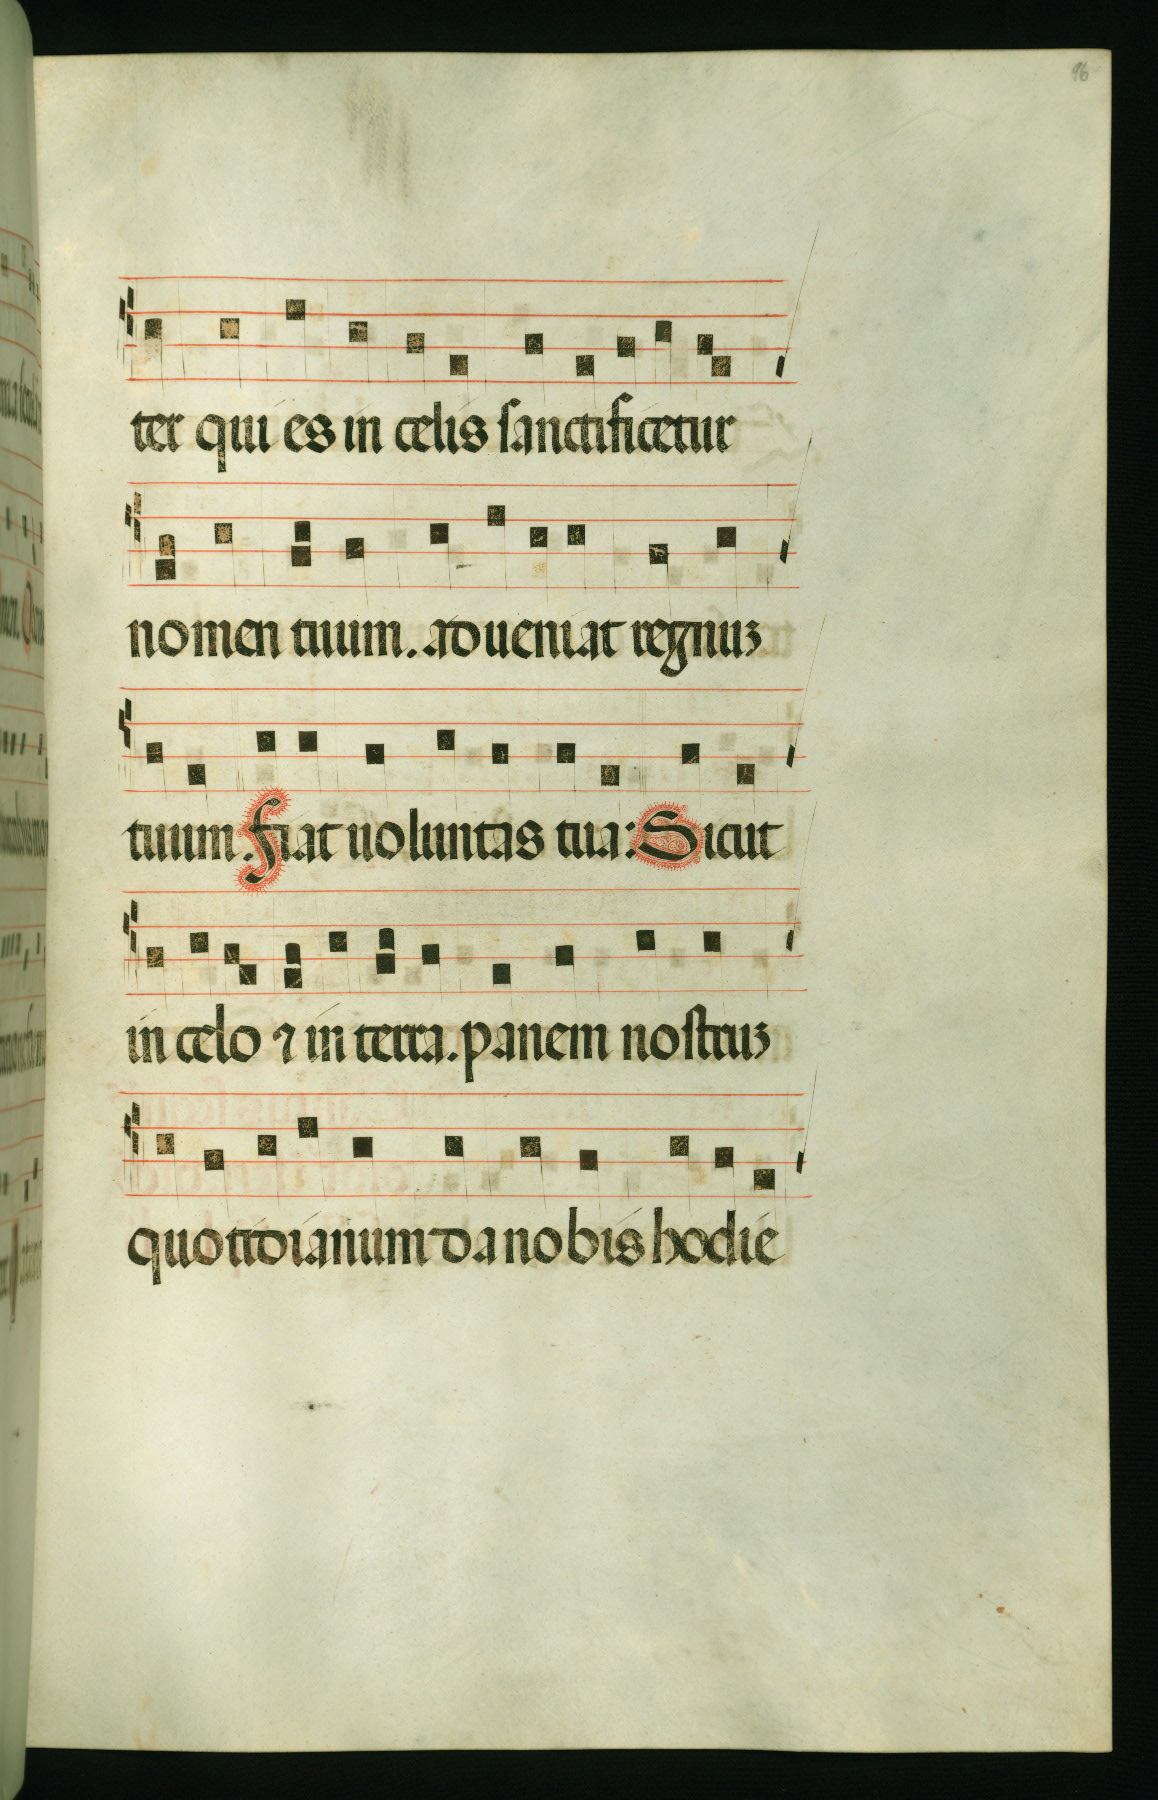 96
ter qui es in celis sanctificetur
nomen tuum. adueniat regnuꝫ
tuum. Fiat uoluntas tua: Sicut
in celo ⁊ in terra. panem nostruꝫ
quottidianum da nobis hodie